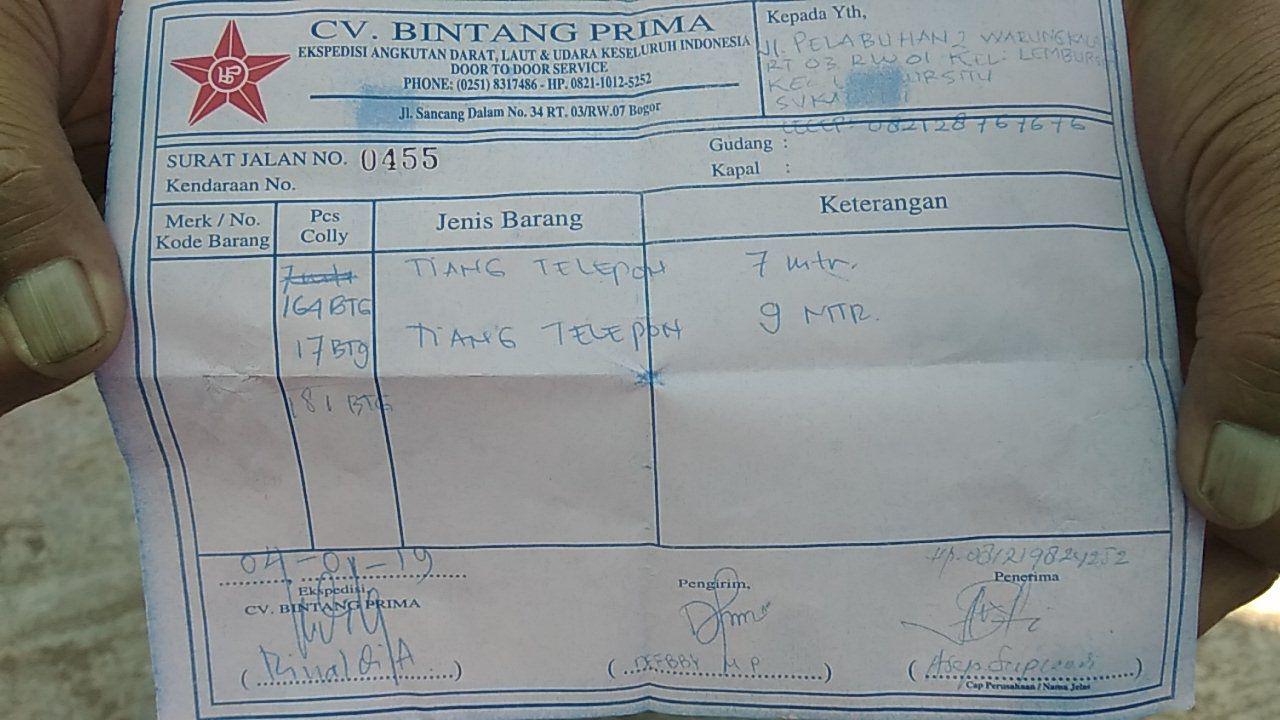 CV. BINTANG PRIMA
EKSPEDISI ANGKUTAN DARAT, LAUT & UDARA KESELURUH INDONESIA
DOOR TO DOOR SERVICE
PHONE: (0251) 8317486 - HP. 0821-1012-5252
Jl. Sancang Dalam No. 34 RT. 03/RW.07 Bogor
Kepada Yth,
Jl. PELABUHAN 2
RT 03 RW 01 KEL. LEMBUR
KEC
082128767676
SURAT JALAN NO. 0455
Kendaraan No.
Gudang :
Kapal :
Merk / No. Kode Barang
Pcs Colly
Jenis Barang
Keterangan
164 BTG TIANG TELEPON 7 mtr.
17 BTg TIANG TELEPON 9 MTR.
181 BTG
04-01-19
Ekspedisi,
CV. BINTANG PRIMA
(Rinaldi A)
Pengirim,
(DEBBY M P)
Hp. 081219824252
Penerima
(Asep Supriadi)
Cap Perusahaan / Nama Jelas